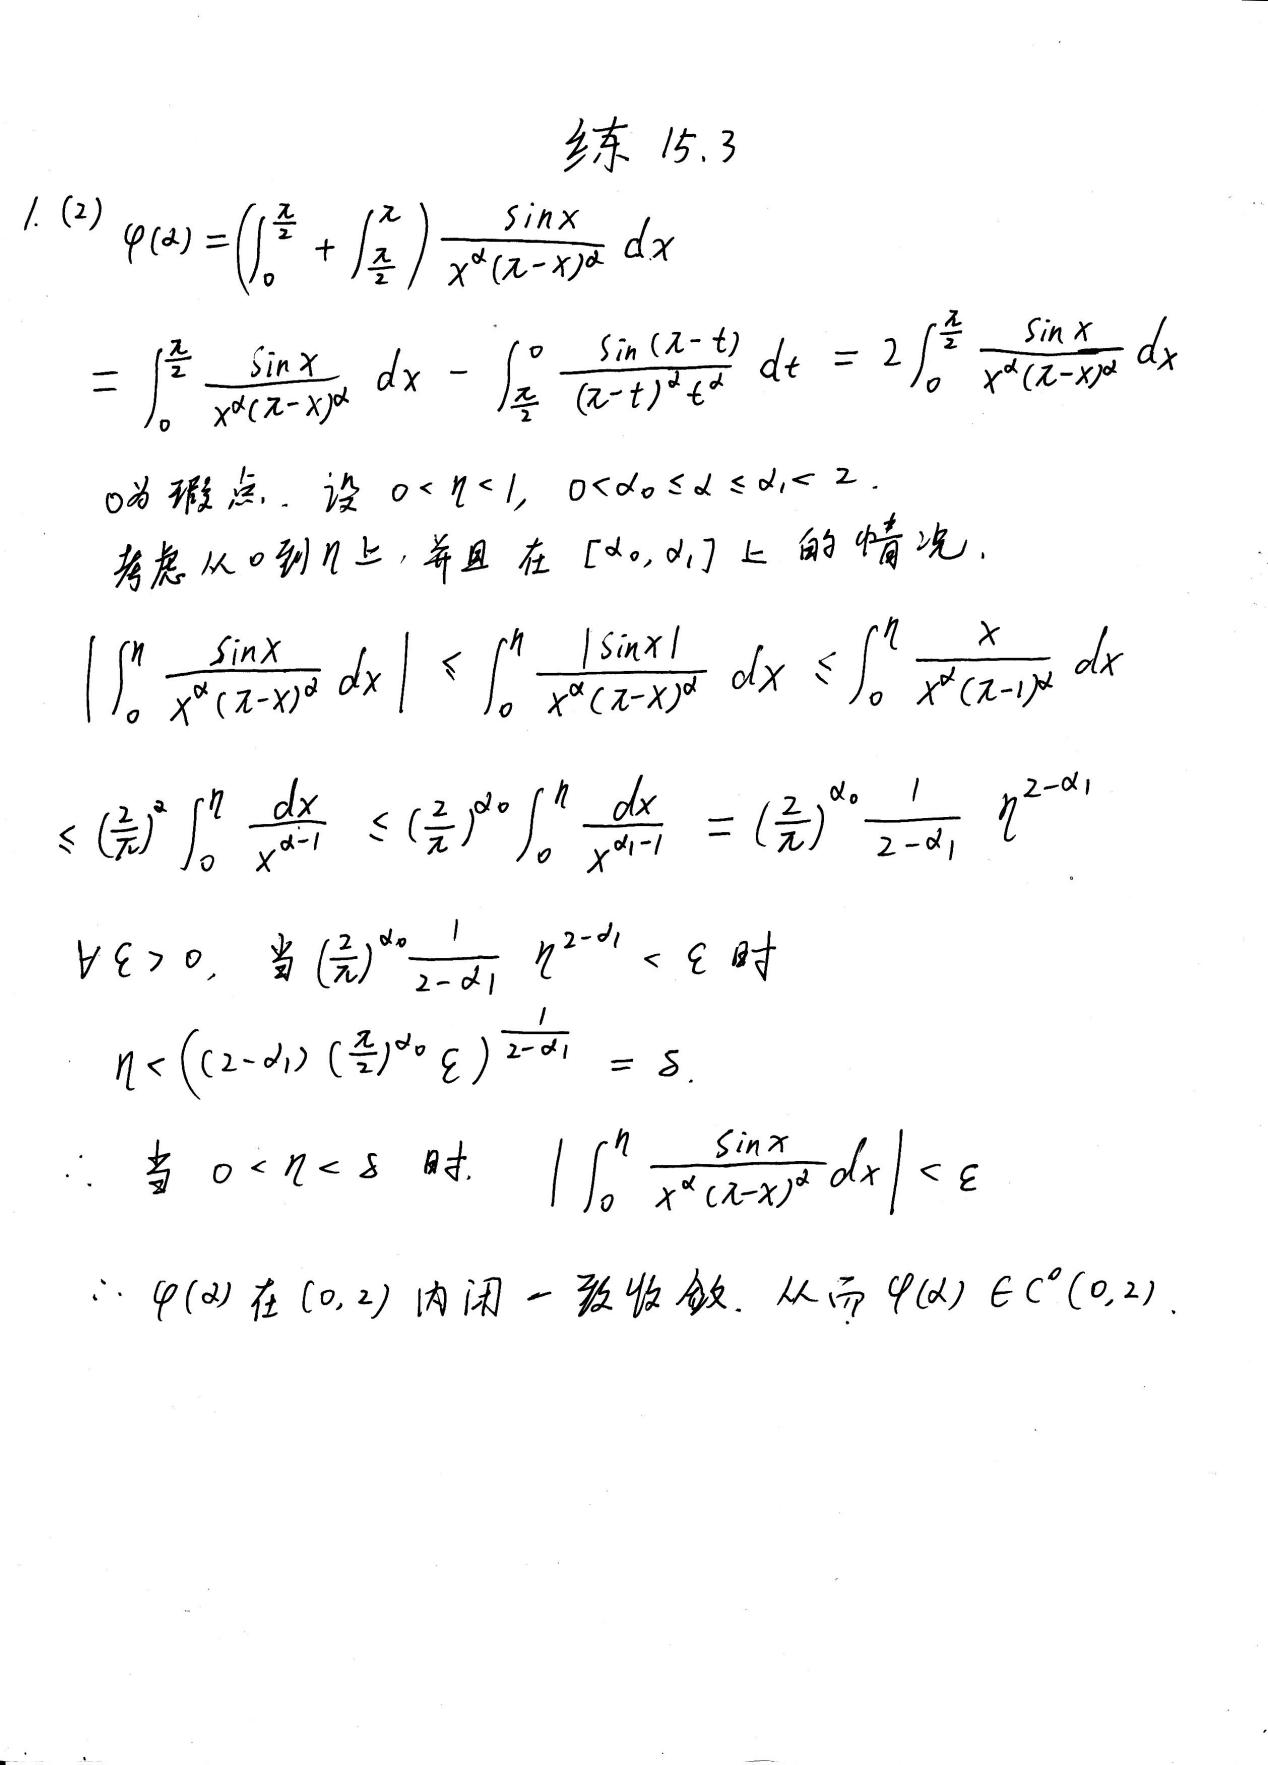 练 15.3
1. (2) φ(α) = (∫_0^{π/2} + ∫_{π/2}^π) sinx / (x^α(π-x)^α) dx
= ∫_0^{π/2} sinx / (x^α(π-x)^α) dx - ∫_{π/2}^0 sin(π-t) / ((π-t)^α t^α) dt = 2∫_0^{π/2} sinx / (x^α(π-x)^α) dx
0为瑕点. 设 0<η<1, 0<α_0≤α≤α_1<2.
考虑从0到η上, 并且在 [α_0, α_1] 上的情况.
|∫_0^η sinx / (x^α(π-x)^α) dx| ≤ ∫_0^η |sinx| / (x^α(π-x)^α) dx ≤ ∫_0^η x / (x^α(π-1)^α) dx
≤ (2/π)^α ∫_0^η dx / x^{α-1} ≤ (2/π)^{α_0} ∫_0^η dx / x^{α_1-1} = (2/π)^{α_0} 1/(2-α_1) η^{2-α_1}
∀ε>0, 当 (2/π)^{α_0} 1/(2-α_1) η^{2-α_1} < ε 时
η < ((2-α_1)(π/2)^{α_0} ε)^{1/(2-α_1)} = δ.
∴ 当 0<η<δ 时. |∫_0^η sinx / (x^α(π-x)^α) dx| < ε
∴ φ(α)在(0,2)内闭一致收敛. 从而φ(α)∈C^0(0,2).